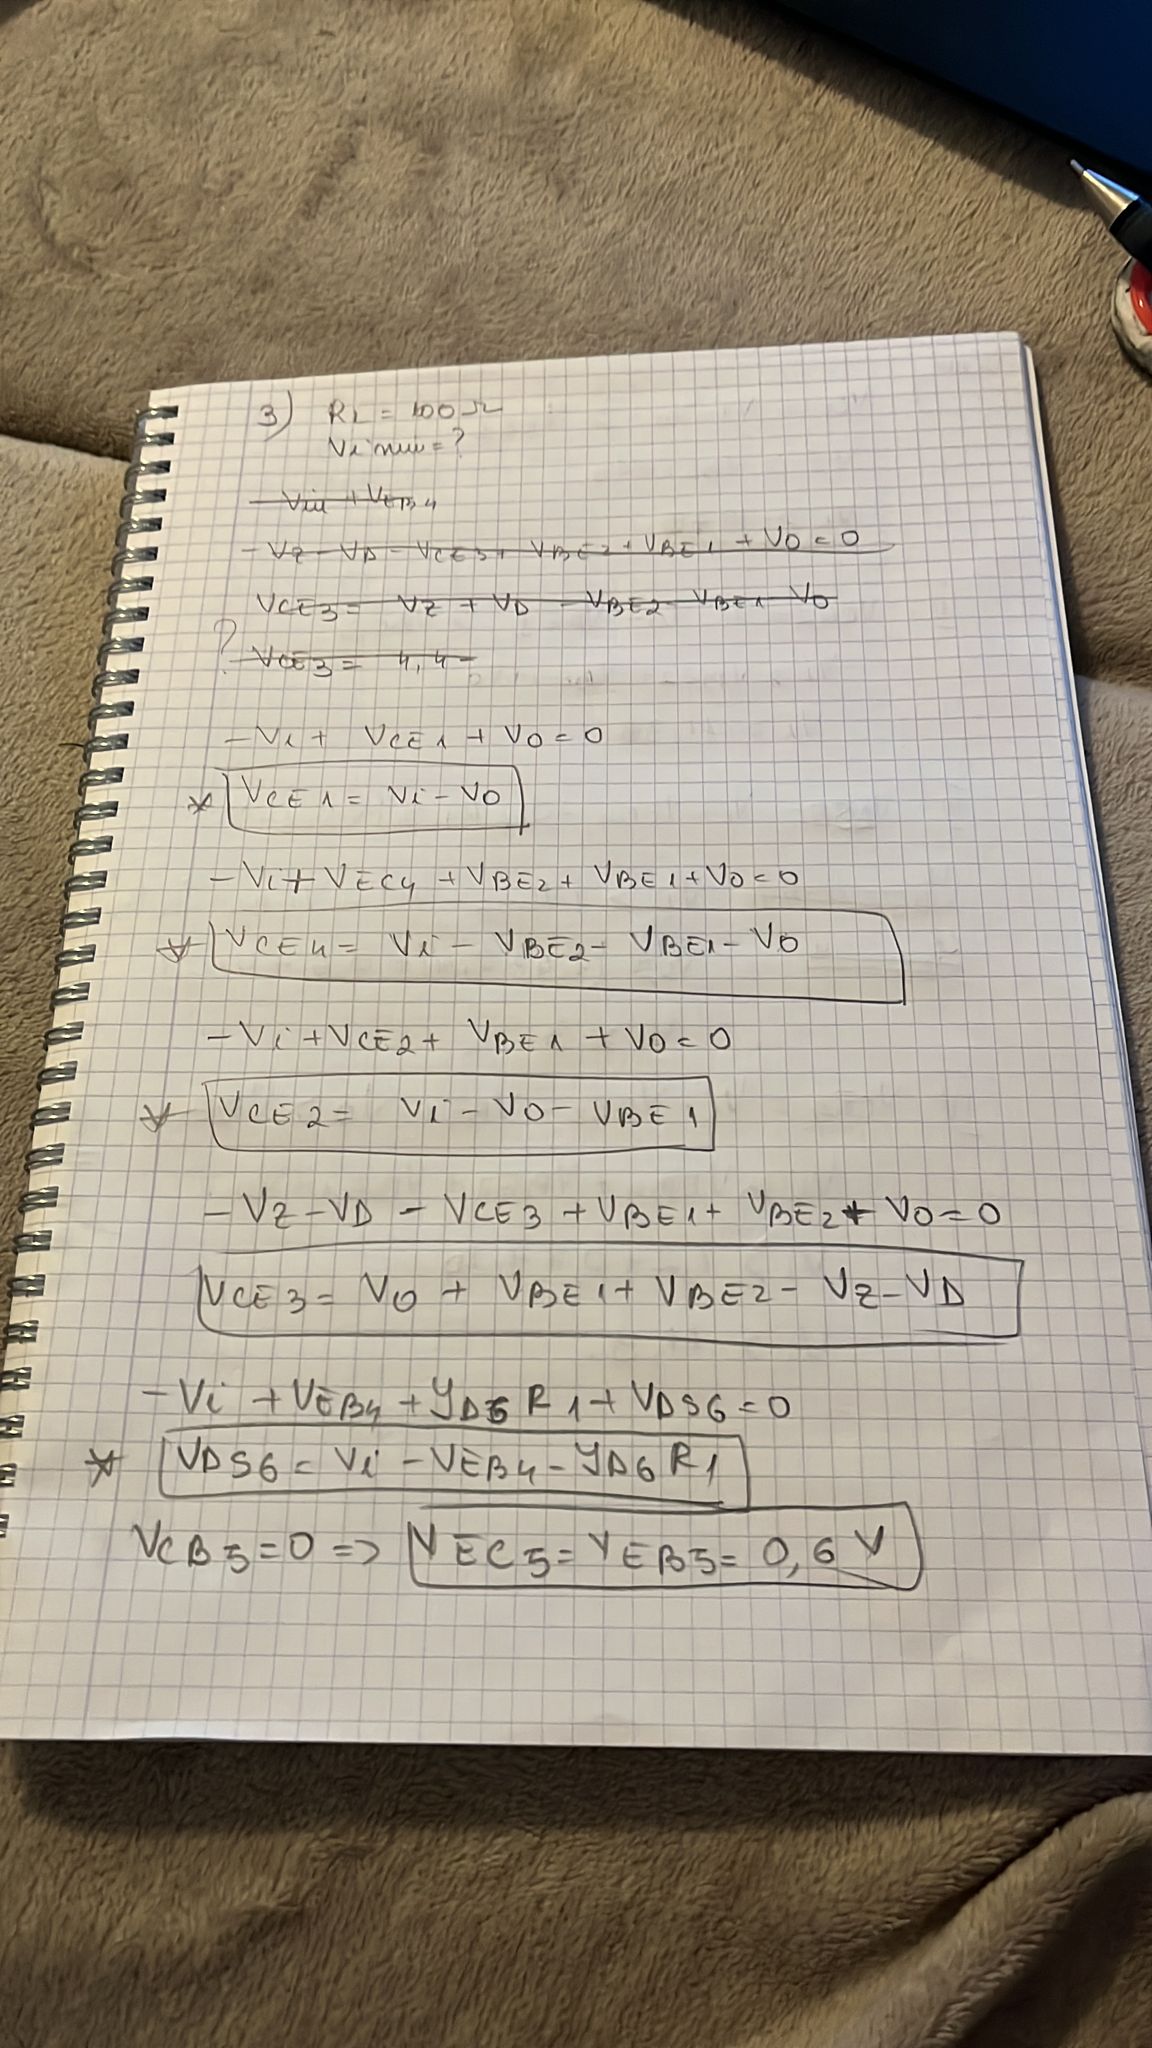 3) RL = 100Ω
Vi min = ?
-Vin + VEB4
-VZ - VD - VCE3 + VBE2 + VBE1 + VO = 0
VCE3 = VZ + VD - VBE2 - VBE1 - VO
? VCE3 = 4,4
-Vi + VCE1 + VO = 0
* VCE1 = Vi - VO
-Vi + VEC4 + VBE2 + VBE1 + VO = 0
* VCE4 = Vi - VBE2 - VBE1 - VO
-Vi + VCE2 + VBE1 + VO = 0
* VCE2 = Vi - VO - VBE1
-VZ - VD - VCE3 + VBE1 + VBE2 + VO = 0
VCE3 = VO + VBE1 + VBE2 - VZ - VD
-Vi + VEB4 + ID6 R1 + VDS6 = 0
* VDS6 = Vi - VEB4 - ID6 R1
VCB5 = 0 => VEC5 = VEB5 = 0,6 V